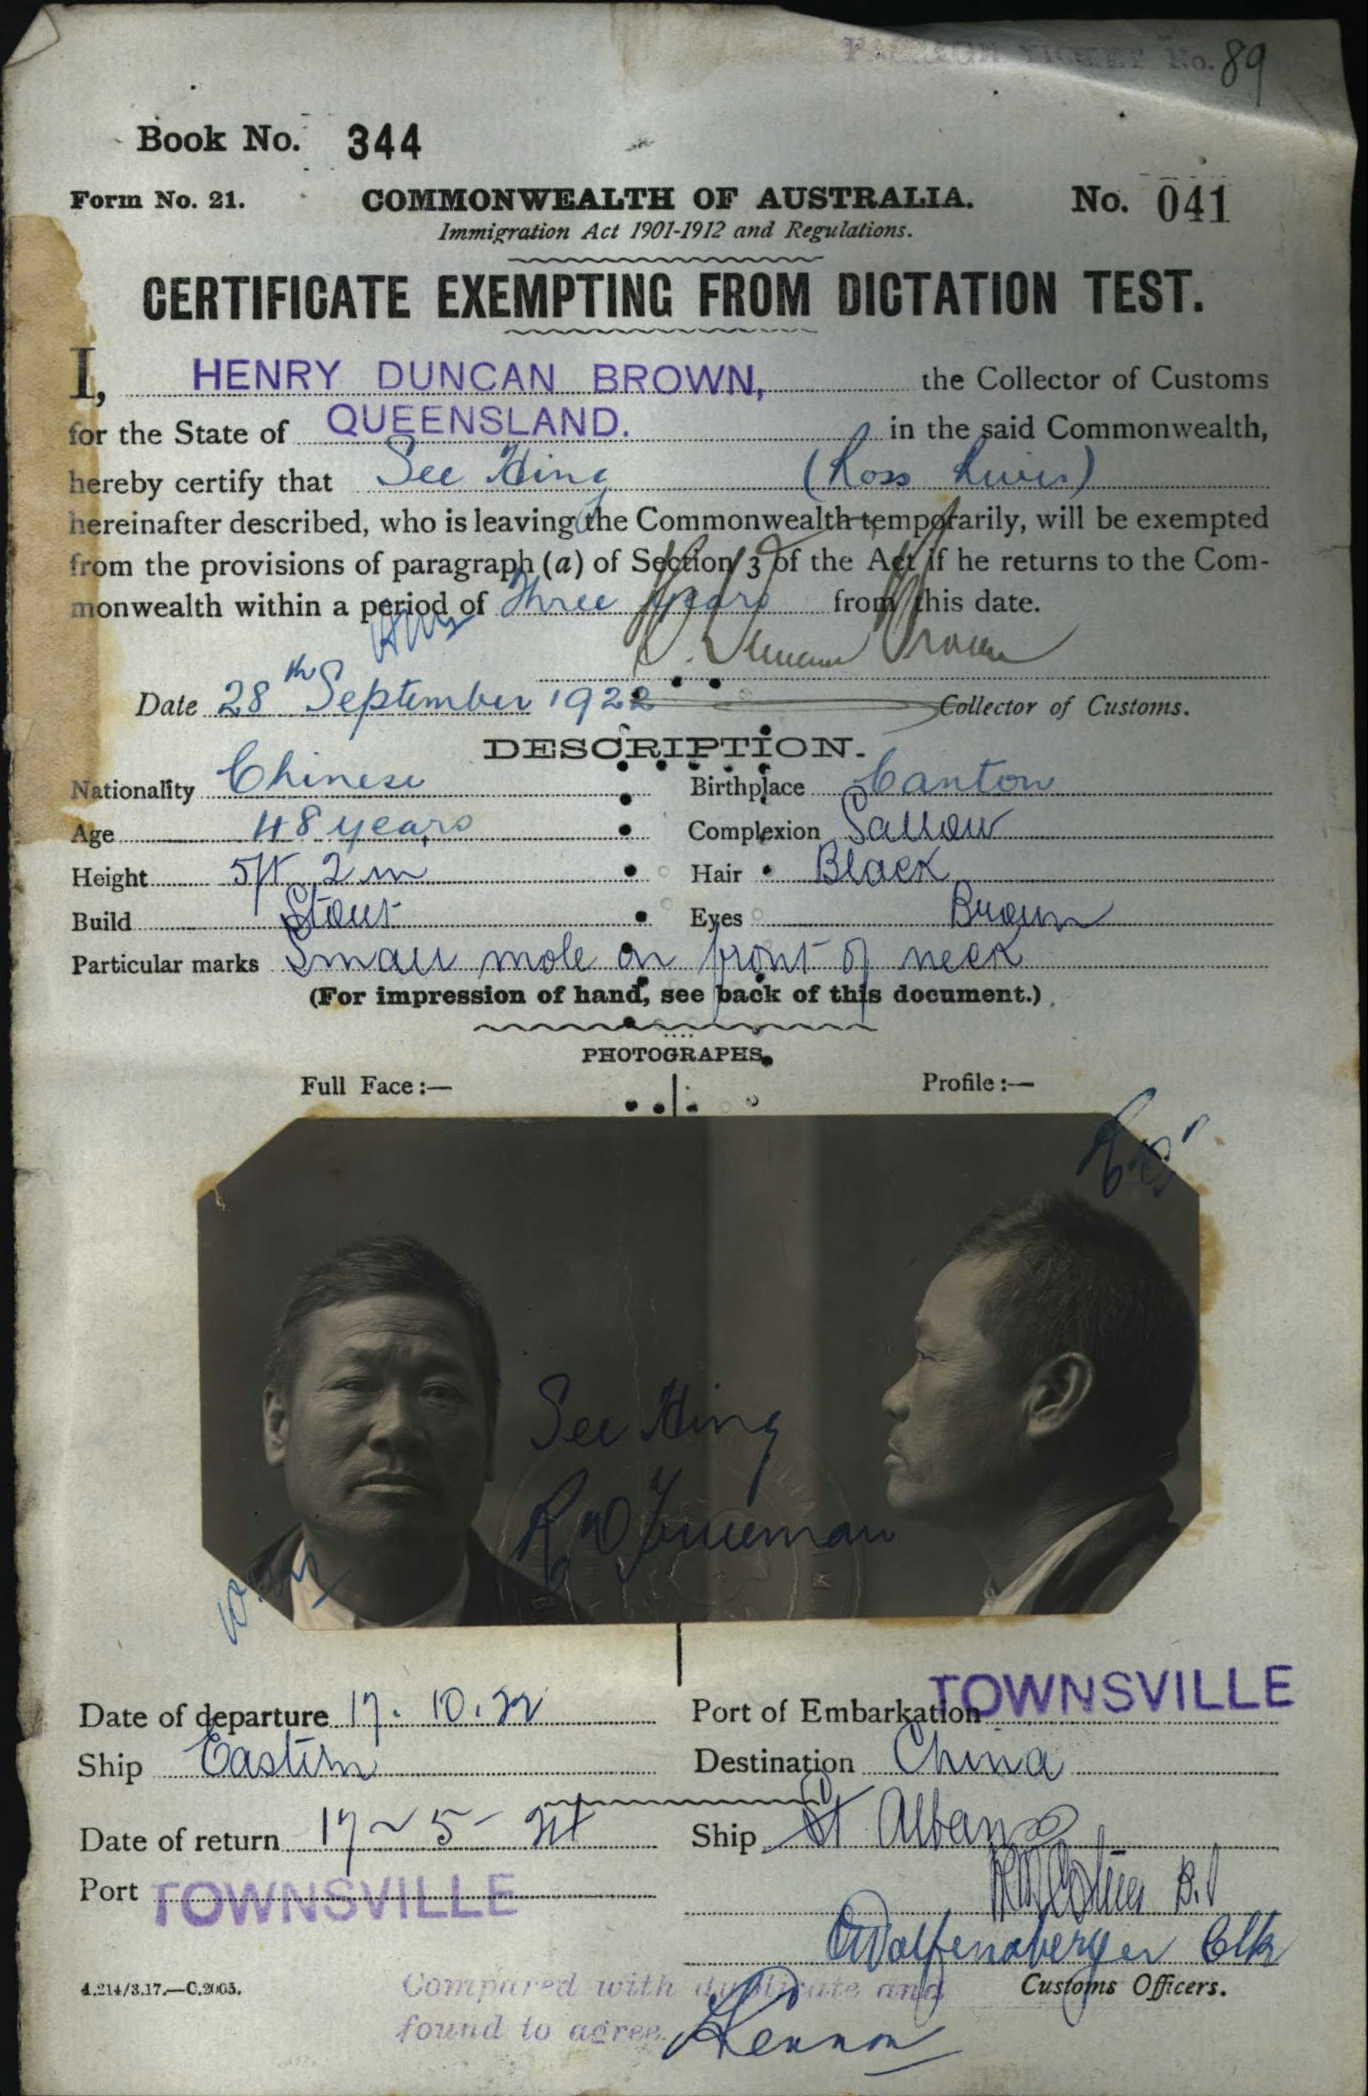 No. 89
Book No. 344
Form No. 21. COMMONWEALTH OF AUSTRALIA. No. 041
Immigration Act 1901-1912 and Regulations.
CERTIFICATE EXEMPTING FROM DICTATION TEST.
I, HENRY DUNCAN BROWN, the Collector of Customs
for the State of QUEENSLAND. in the said Commonwealth,
hereby certify that See Hing (Ross River)
hereinafter described, who is leaving the Commonwealth temporarily, will be exempted
from the provisions of paragraph (a) of Section 3 of the Act if he returns to the Com-
monwealth within a period of Three years from this date.
H. Duncan Brown
Date 28th September 1922 Collector of Customs.
DESCRIPTION.
Nationality Chinese Birthplace Canton
Age 48 years Complexion Sallow
Height 5ft 2 in Hair Black
Build Stout Eyes Brown
Particular marks Small mole on front of neck
(For impression of hand, see back of this document.)
PHOTOGRAPHS.
Full Face :— Profile :—
See Hing
Date of departure 17. 10. 22 Port of Embarkation TOWNSVILLE
Ship Eastern Destination China
Date of return 17-5-24 Ship St Albans
Port TOWNSVILLE
Clk
4.214/3.17.—C.2005. Customs Officers.
Compared with duplicate and
found to agree.